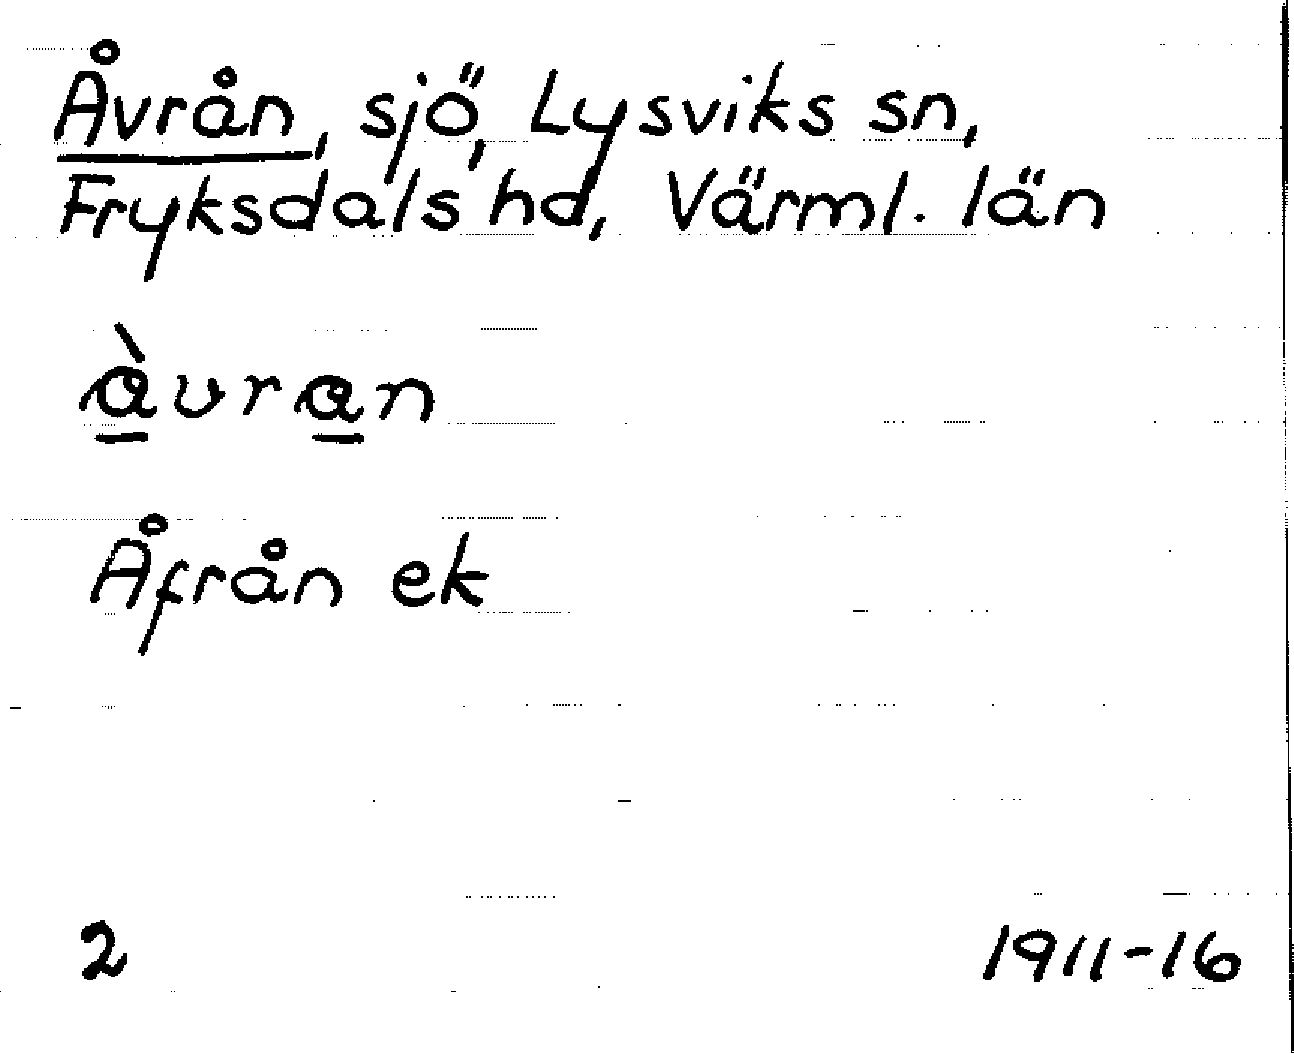 Åvrån, sjö, Lysviks sn,
Fryksdals hd, Värml. län
å̱̀vrå̱n
Åfrån ek
2
1911-16